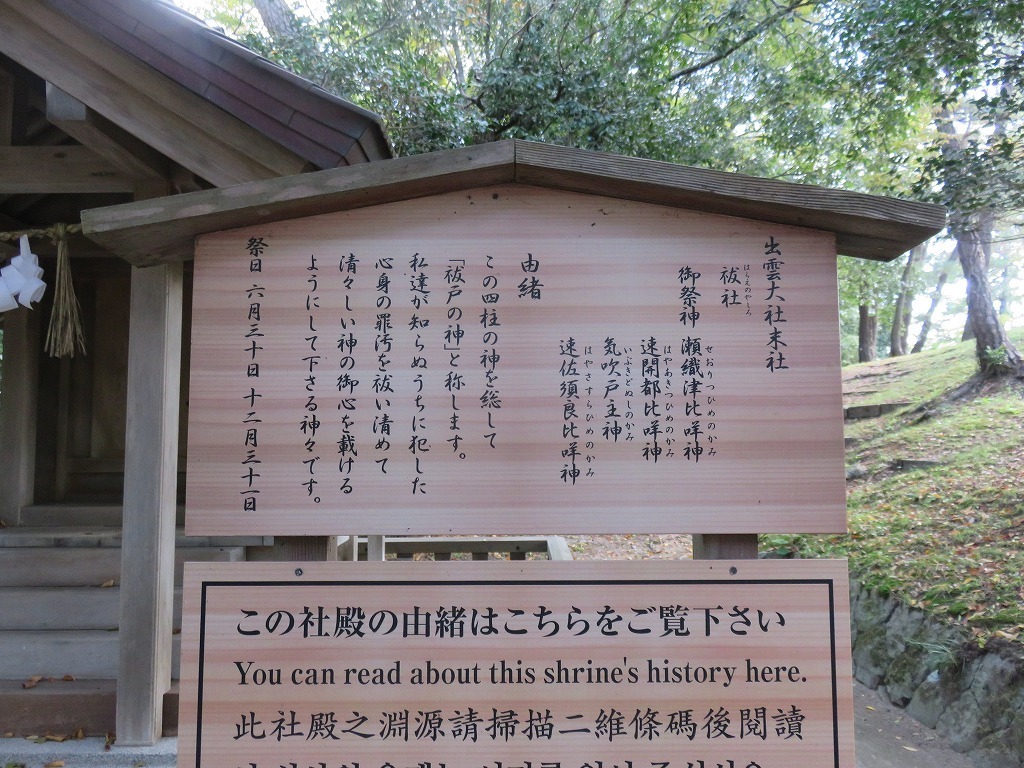 出雲大社末社
はらえのやしろ
祓社
御祭神 瀬織津比咩神
せおりつひめのかみ
速開都比咩神
はやあきつひめのかみ
気吹戸主神
いぶきどぬしのかみ
速佐須良比咩神
はやさすらひめのかみ
由緒
この四柱の神を総して
「祓戸の神」と称します。
私達が知らぬうちに犯した
心身の罪汚を祓い清めて
清々しい神の御心を載ける
ようにして下さる神々です。
祭日 六月三十日 十二月三十一日
この社殿の由緒はこちらをご覧下さい
You can read about this shrine's history here.
此社殿之淵源請掃描二維條碼後閱讀